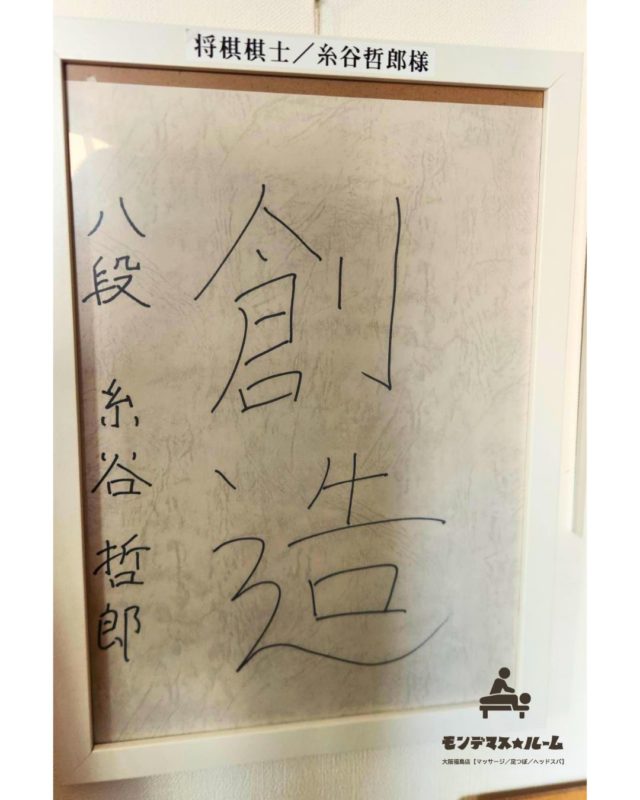 将棋棋士／糸谷哲郎様
創造
八段 糸谷哲郎
モンデマス★ルーム
大阪福島店【マッサージ／足つぼ／ヘッドスパ】